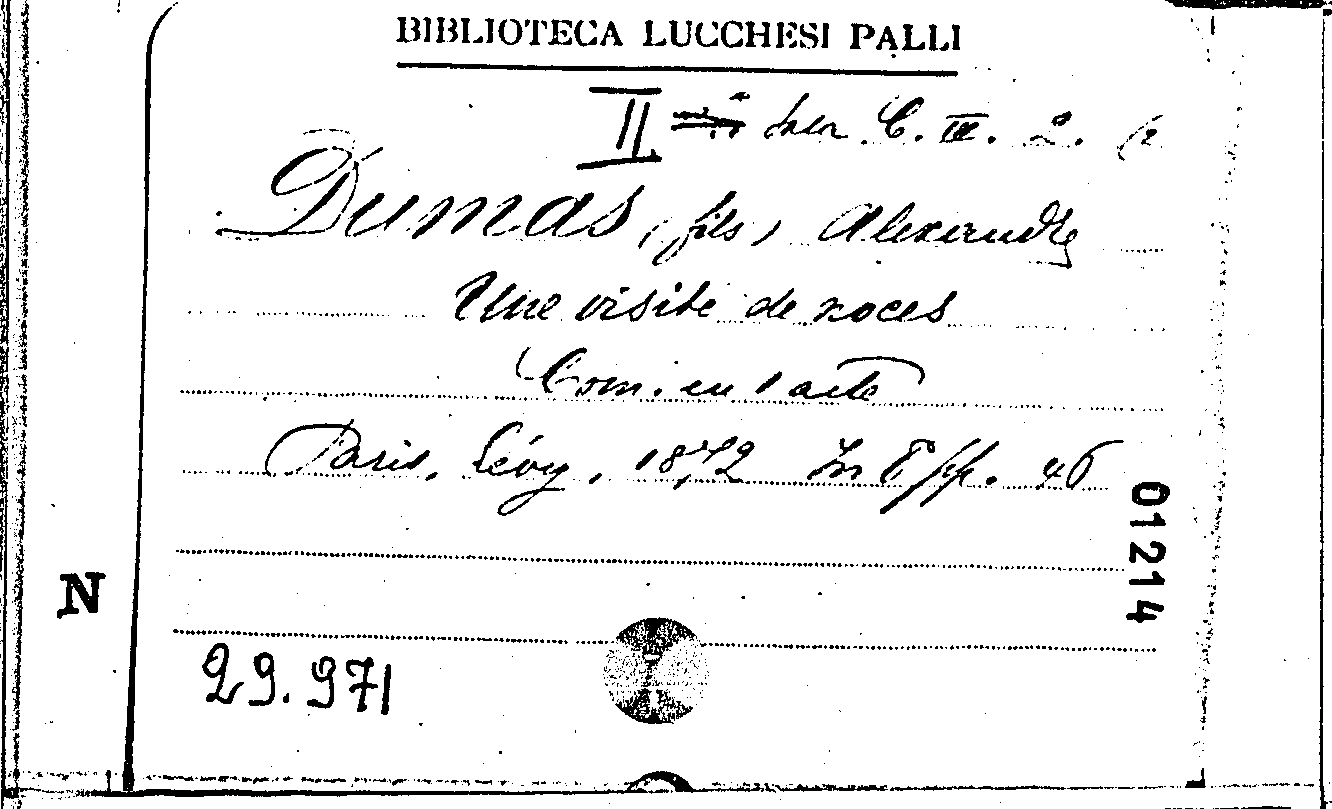 BIBLIOTECA LUCCHESI PALLI
II Sala C. III. 2. (2
Dumas, (fils) Alexandre
Une visite de noces
Com. en 1 acte
Paris, Lévy, 1872 In 8° pp. 46
01214
N
29.971